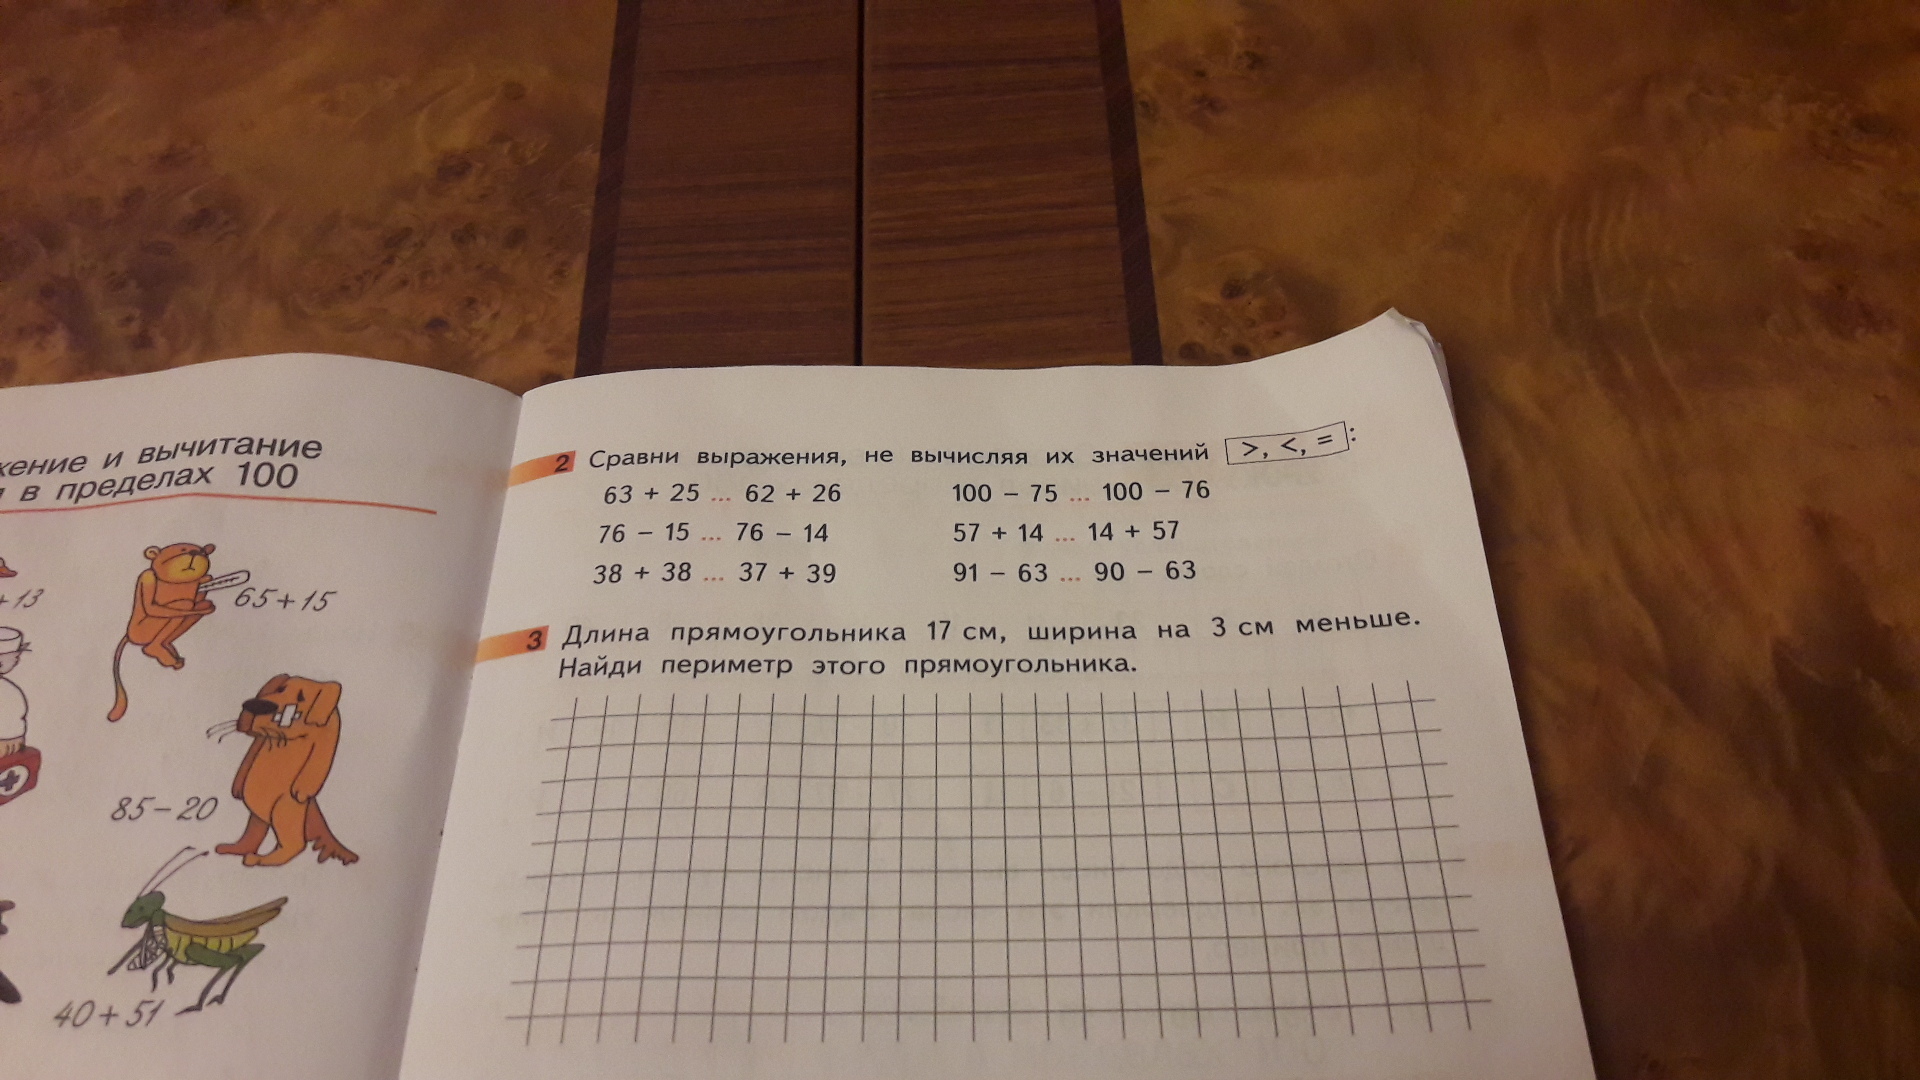 вычитание
в пределах 100
+ 13
65 + 15
85 − 20
40 + 51
2 Сравни выражения, не вычисляя их значений >, <, = :
63 + 25 ... 62 + 26 100 − 75 ... 100 − 76
76 − 15 ... 76 − 14 57 + 14 ... 14 + 57
38 + 38 ... 37 + 39 91 − 63 ... 90 − 63
3 Длина прямоугольника 17 см, ширина на 3 см меньше.
Найди периметр этого прямоугольника.